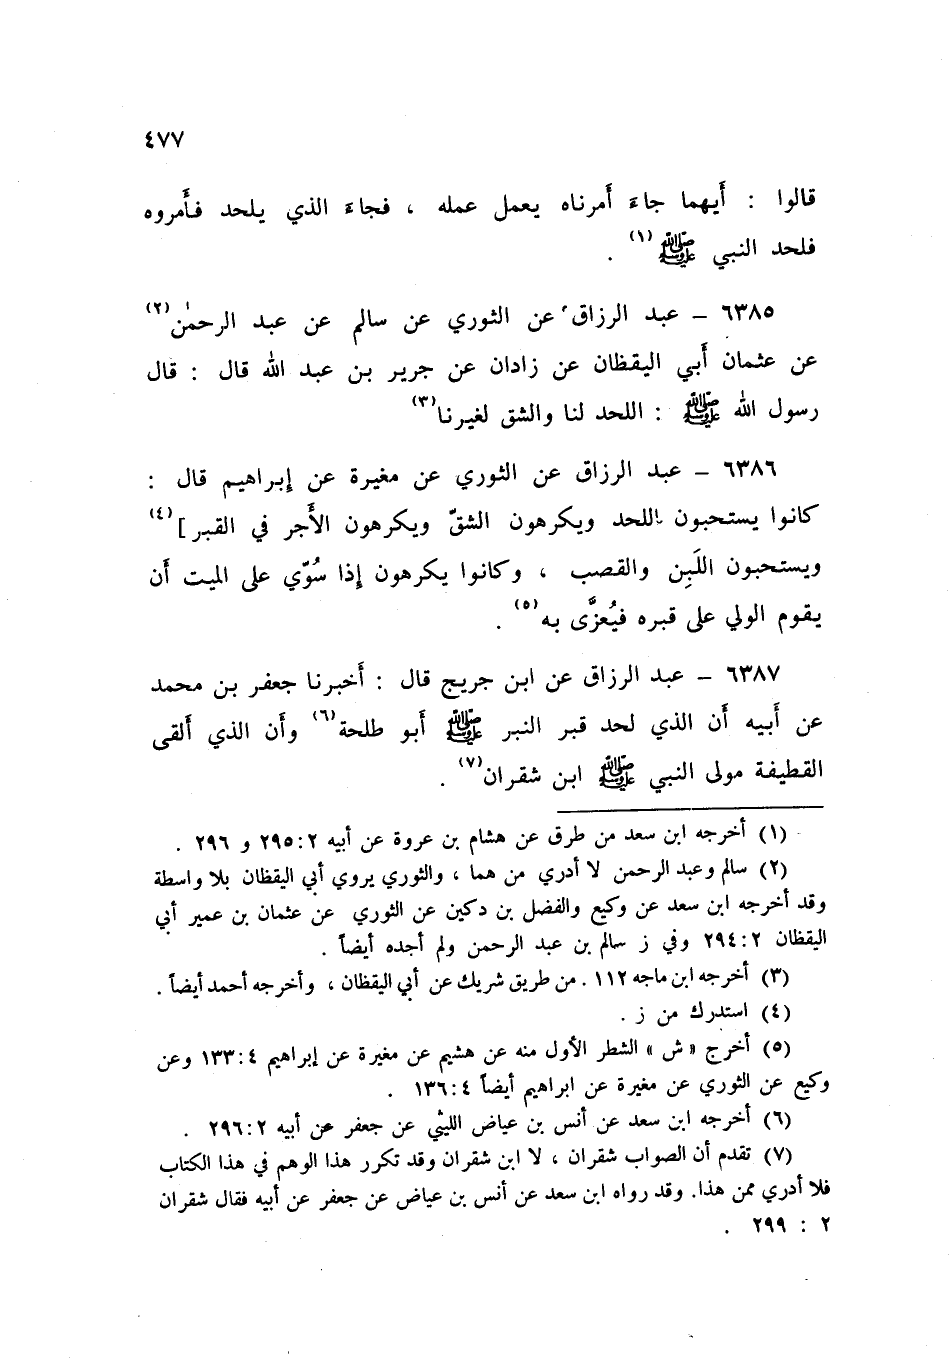 ٤٧٧
قالوا : أَيهما جاءَ أَمرناه يعمل عمله ، فجاءَ الذي يلحد فأَمروه
فلحد النبي ﷺ (١) .
٦٣٨٥ – عبد الرزاق عن الثوري عن سالم عن عبد الرحمٰن (٢)
عن عثمان أَبي اليقظان عن زادان عن جرير بن عبد الله قال : قال
رسول الله ﷺ : اللحد لنا والشق لغيرنا (٣)
٦٣٨٦ – عبد الرزاق عن الثوري عن مغيرة عن إبراهيم قال :
كانوا يستحبون اللحد ويكرهون الشقّ ويكرهون الأَجر في القبر ] (٤)
ويستحبون اللَبِن والقصب ، وكانوا يكرهون إذا سُوّي على الميت أن
يقوم الولي على قبره فيُعزَّى به (٥) .
٦٣٨٧ – عبد الرزاق عن ابن جريج قال : أَخبرنا جعفر بن محمد
عن أَبيه أَن الذي لحد قبر النبر ﷺ أَبو طلحة (٦) وأَن الذي أَلقى
القطيفة مولى النبي ﷺ ابن شقران (٧) .
(١) أخرجه ابن سعد من طرق عن هشام بن عروة عن أبيه ٢:٢٩٥ و ٢٩٦ .
(٢) سالم وعبد الرحمن لا أدري من هما ، والثوري يروي أبي اليقظان بلا واسطة
وقد أخرجه ابن سعد عن وكيع والفضل بن دكين عن الثوري عن عثمان بن عمير أبي
اليقظان ٢:٢٩٤ وفي ز سالم بن عبد الرحمن ولم أجده أيضاً .
(٣) أخرجه ابن ماجه ١١٢ . من طريق شريك عن أبي اليقظان ، وأخرجه أحمد أيضاً .
(٤) استدرك من ز .
(٥) أخرج « ش » الشطر الأول منه عن هشيم عن مغيرة عن إبراهيم ٤:١٣٣ وعن
وكيع عن الثوري عن مغيرة عن ابراهيم أيضاً ٤:١٣٦ .
(٦) أخرجه ابن سعد عن أنس بن عياض الليثي عن جعفر عن أبيه ٢:٢٩٦ .
(٧) تقدم أن الصواب شقران ، لا ابن شقران وقد تكرر هذا الوهم في هذا الكتاب
فلا أدري ممن هذا. وقد رواه ابن سعد عن أنس بن عياض عن جعفر عن أبيه فقال شقران
٢ : ٢٩٩ .